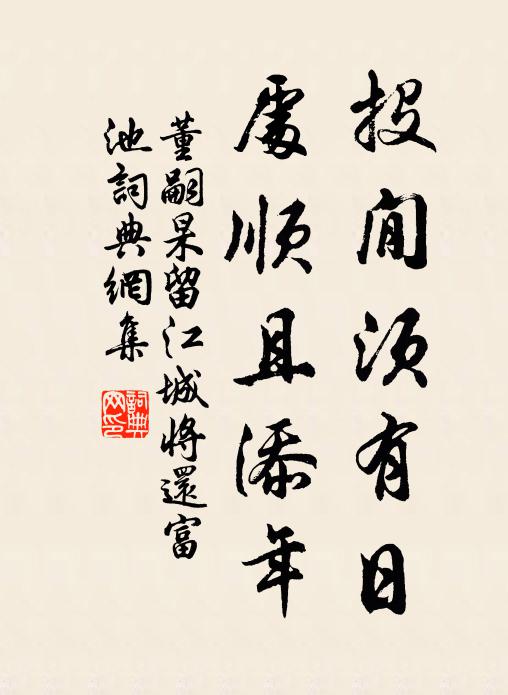 投閒須有日
處順且添年
董嗣杲留江城將還富
池詞典網集
詞典网印